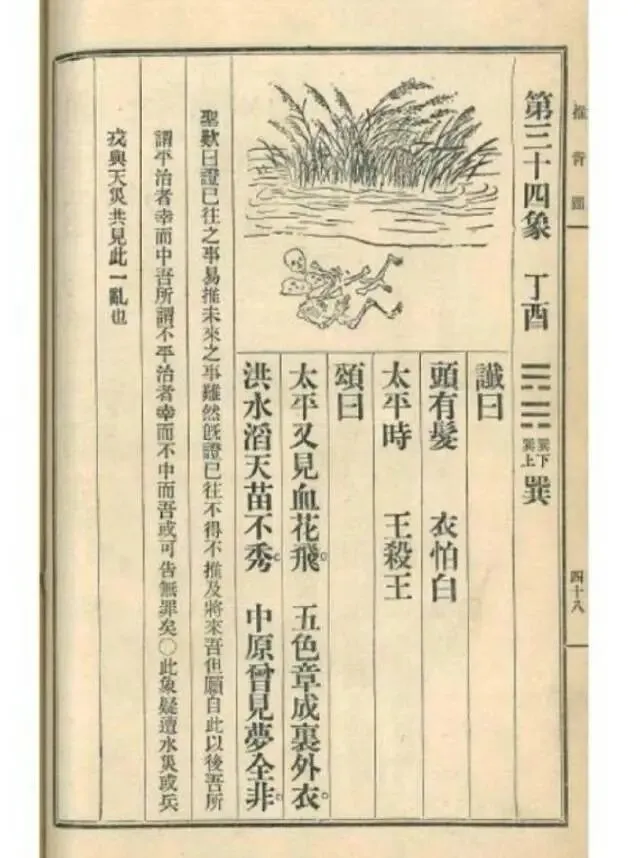 推背圖
四十八
第三十四象 丁酉 巽下巽上 巽
讖曰
頭有髮 衣怕白
太平時 王殺王
頌曰
太平又見血花飛 五色章成裏外衣
洪水滔天苗不秀 中原曾見夢全非
聖歎曰證已往之事易推未來之事難然既證已往不得不推及將來吾但願自此以後吾所
謂平治者幸而中吾所謂不平治者幸而不中而吾或可告無罪矣〇此象疑遭水災或兵
戎與天災共見此一亂也